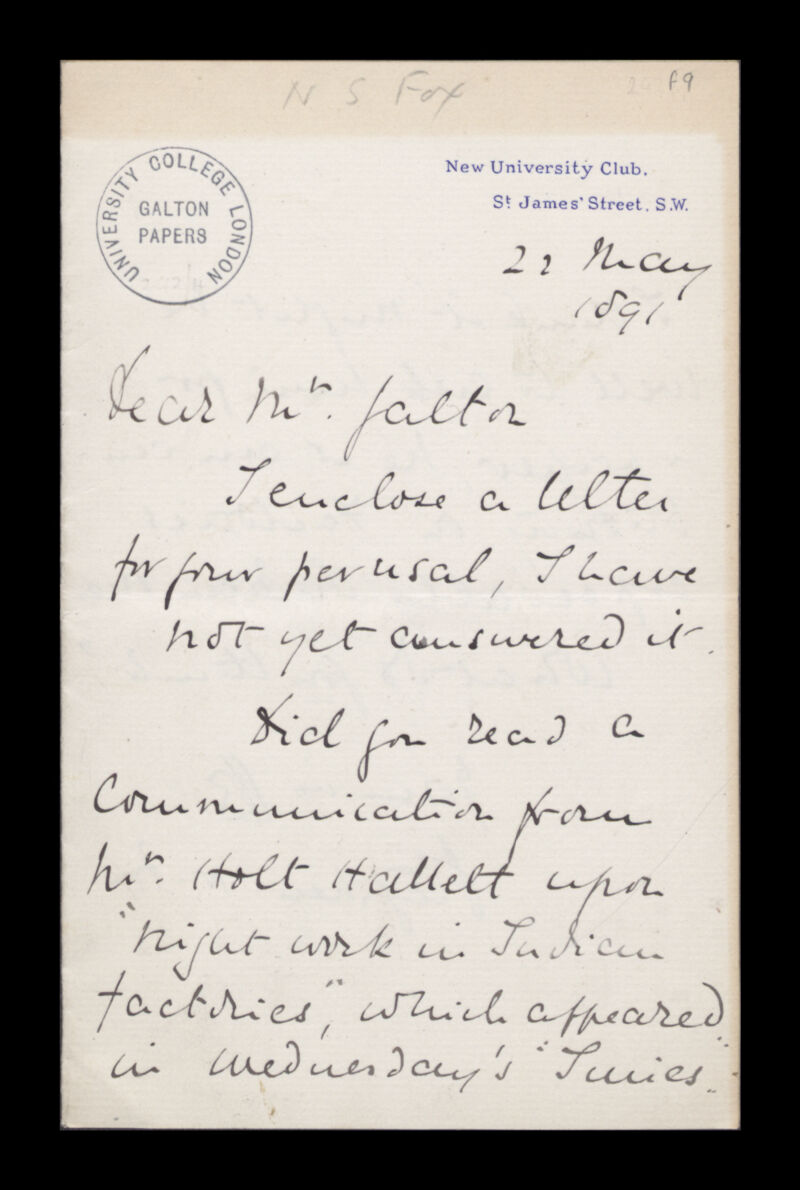 N S Fox
f9
UNIVERSITY COLLEGE LONDON
GALTON
PAPERS
New University Club,
St James' Street, S.W.
22 May
1891
Dear Mr. Galton
I enclose a letter
for your perusal, I have
not yet answered it.
Did you read a
Communication from
Mr. Holt Hallett upon
"Night work in Indian
factories", which appeared
in Wednesday's "Times".